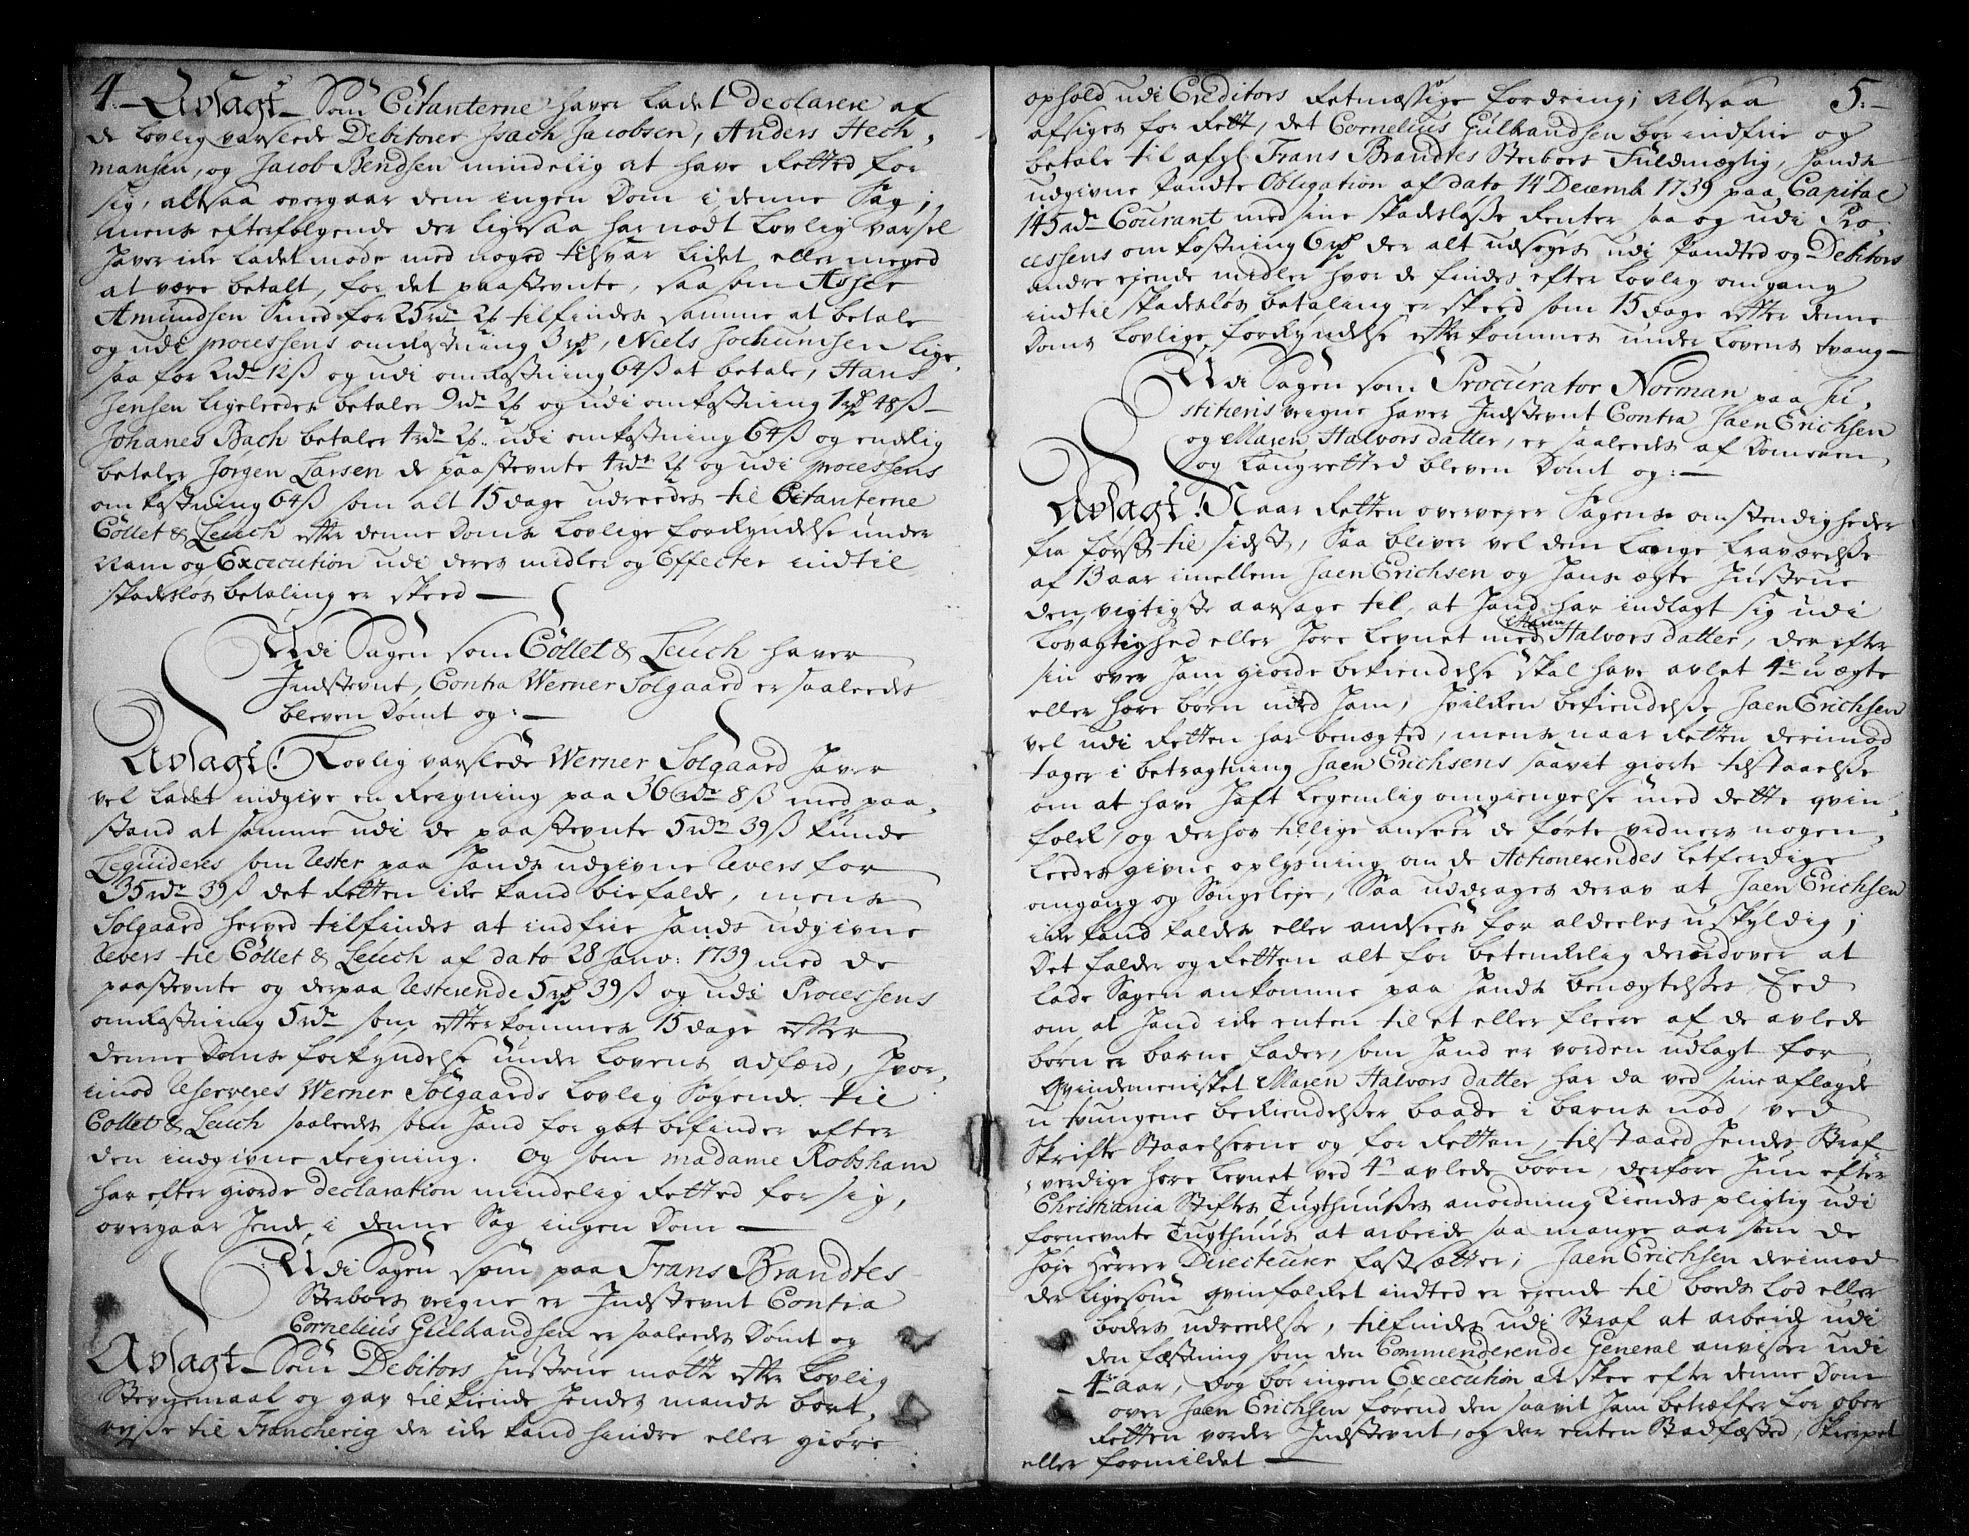 4.
Avsagt – Som Citanterne haver ladet declarere af
de lovlig varslede Debitorer Isach Jacobsen, Anders Hech,
mansen, og Jacob Bendsen mindelig at have Retted for
sig, altsaa overgaar dem ingen Dom i denne Sag;
mens efterfølgende der ligesaa har nødt lovlig varsel
haver icke ladet møde med noged tilsvar lidet eller meged
at være betalt, for det paastevnte, saasom Asser
Amundsen Smed for 25 rdr 2 ß tilfindes samme at betale
og udi processens omkostning 3 rdr, Niels Jochumsen lige
saa for 2 rdr 12 ß og udi omkostning 64 ß at betale, Hans
Jensen ligeleedes betaler 9 rdr 2 ß og udi omkostning 1 rdr 48 ß –
Johanes Bach betaler 4 rdr 2 ß: udi omkostning 64 ß og endelig
betaler Jørgen Larsen de paastevnte 4 rdr 2 ß og udi processens
omkostning 64 ß som alt 15 dage udreedes til Citanterne
Collet & Leuch efter denne Doms lovlige forkyndelse under
Nam og Excecution udi deres midler og Effecter indtil
skadesløs betaling er skeed –
Udi Sagen som Collet & Leuch haver
Indstevnt, Contra Werner Solgaard er saaleedes
bleven Dømt og: –
Avsagt! Lovlig varslede Werner Solgaard haver
vel ladet indgive en Reigning paa 36 rdr 8 ß med paa,
stand at samme udi de paastevnte 5 rdr 39 ß kunde
Leqvideres som Rester paa hands udgivne Revers for
35 rdr 39 ß det Retten icke kand biefalde, mens
Solgaard herved tilfindes at indfrie hands udgivne
Revers til Collet & Leuch af dato 28 Janv: 1739 med de
paastevnte og derpaa Resterende 5 rdr 39 ß og udi Processens
omkostning 5 rdr som efterkommes 15 dage efter
denne Doms forkyndelse under Lovens adfærd, hvor,
imod Reserveres Werner Solgaards Lovlig Søgende til
Collet & Leuch saaleedes som hand for got befinder efter
den indgivne Reigning. Og som madame Robsham
har efter giorde declaration mindelig Retted for sig,
overgaar hende i denne Sag ingen Dom –
Udi Sagen som paa Frans Brandtes
Sterboes veigne er Indstevnt Contra
Cornelius Gulbrandsen er saaleedes Dømt og
Avsagt – Som Debitors Hustrue møtte efter lovlig
Stevnemaal og gav tilkiende hendes mands bort,
rejse til Francherig der icke kand hindre eller giøre
ophold udi Creditors Retmæssige fordring; Altsaa 5: –
afsiges for Rett, det Cornelius Gulbrandsen bør indfrie og
betale til afgl. Frans Brandtes Sterboes Fuldmægtig, hands
udgivne Pandte Obligation af dato 14 Decemb. 1739 paa Capital
145 rdr Courant med sine skadesløse Renter saa og udi Pro,
cessens omkostning 6 rdr der alt udsøges udi Panted og Debitors
andre ejende midler hvor de findes efter Lovlig omgang
indtil skadesløs betaling er skeed som 15 dage efter denne
Doms lovlige forkyndelse efterkommes under Lovens tvang –
Udi Sagen som Procurator Norman paa Ju,
stitiens veigne haver Indstevnt Contra Jaen Erichsen
og Maren Halvors datter, er saaleedes af Domeren
og Laugretted bleven Dømt og: –
Avsagt! Naar Retten overvejer Sagens omstendigheder
fra først til sidst, Saa bliver vel dend lange fraværelse
af 13 aar imellem Jaen Erichsen og hans ægte Hustrue
den vigtigste aarsage til, at hand har indlagt sig udi
Lovagtighed eller hore levnet med Maren Halvors datter, der efter
sin over ham giorde bekiendelse skal have avlet 4re uægte
eller hore børn med ham, hvilken bekiendelse Jaen Erichsen
vel udi Retten har benægted, mens naar Retten derimod
tager i betragtning Jaen Erichsens saavit giorte tilstaaelse
om at have haft Legemlig omgiengelse med dette qvin,
folk, og derhos tillige anseer de førte vidners nogen,
leedes givne oplysning om de Actionerendes Letferdige
omgang og Sengeleje, Saa uddrages derav at Jaen Erichsen
icke kand kaldes eller ansees for aldeeles uskyldig;
Det falder og Retten alt for betenkelig derudover at
lade Sagen ankomme paa hands benægtelses Eed
om at hand icke enten til et eller fleere af de avlede
børn er barne fader, som hand er vorden udlagt for
Qvindemenisket Maren Halvors datter har da ved sine aflagde
utvungene bekiendelser baade i barns nød, ved
Skrifte Staaelserne og for Retten, tilstaaed hendes Straf
verdige hore levnet ved 4re avlede børn, derfore hun efter
Christiania Stifts Tugthuuses anordning kiendes pligtig udi
fornevnte Tugthuus at arbeide saa mange aar som de
høje Herrer Directeurer fastsætter; Jaen Erichsen derimod
der ligesom qvinfolket indted er ejende til boeds lod eller
bøders udreedelse, tilfindes udi Straf at arbeide udi
den fæstning som den Commenderende General anviser udi
– 4re aar, Dog bør ingen Excecution at skee efter denne Dom
over Jaen Erichsen førend den saavit ham betræffer for ober
Retten vorder Indstevnt, og der enten Stadfæsted, Skierpet
eller formildet –